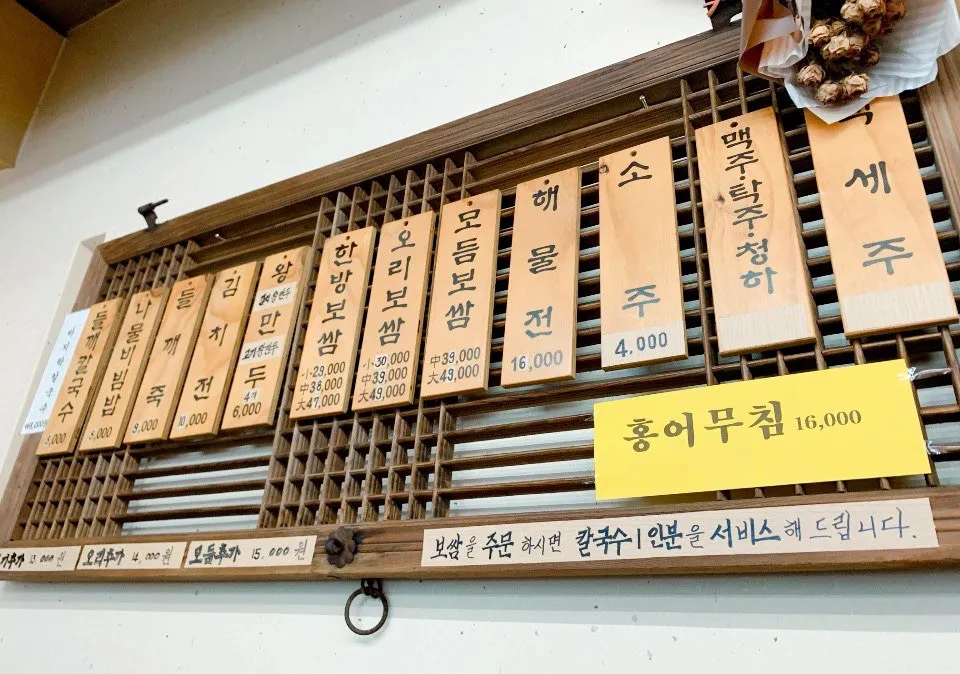 바지락칼국수
들깨칼국수
8,000
나물비빔밥
8,000
들깨죽
9,000
김치전
10,000
왕만두
4개
6,000
한방보쌈
小-29,000
中-38,000
大-47,000
오리보쌈
小-30,000
中-39,000
大-49,000
모듬보쌈
中-39,000
大-49,000
해물전
16,000
소주
4,000
맥주·탁주·청하
세주
홍어무침 16,000
추가 13,000원
오리추가 14,000원
모듬추가 15,000원
보쌈을 주문하시면 칼국수1인분을 서비스해 드립니다.